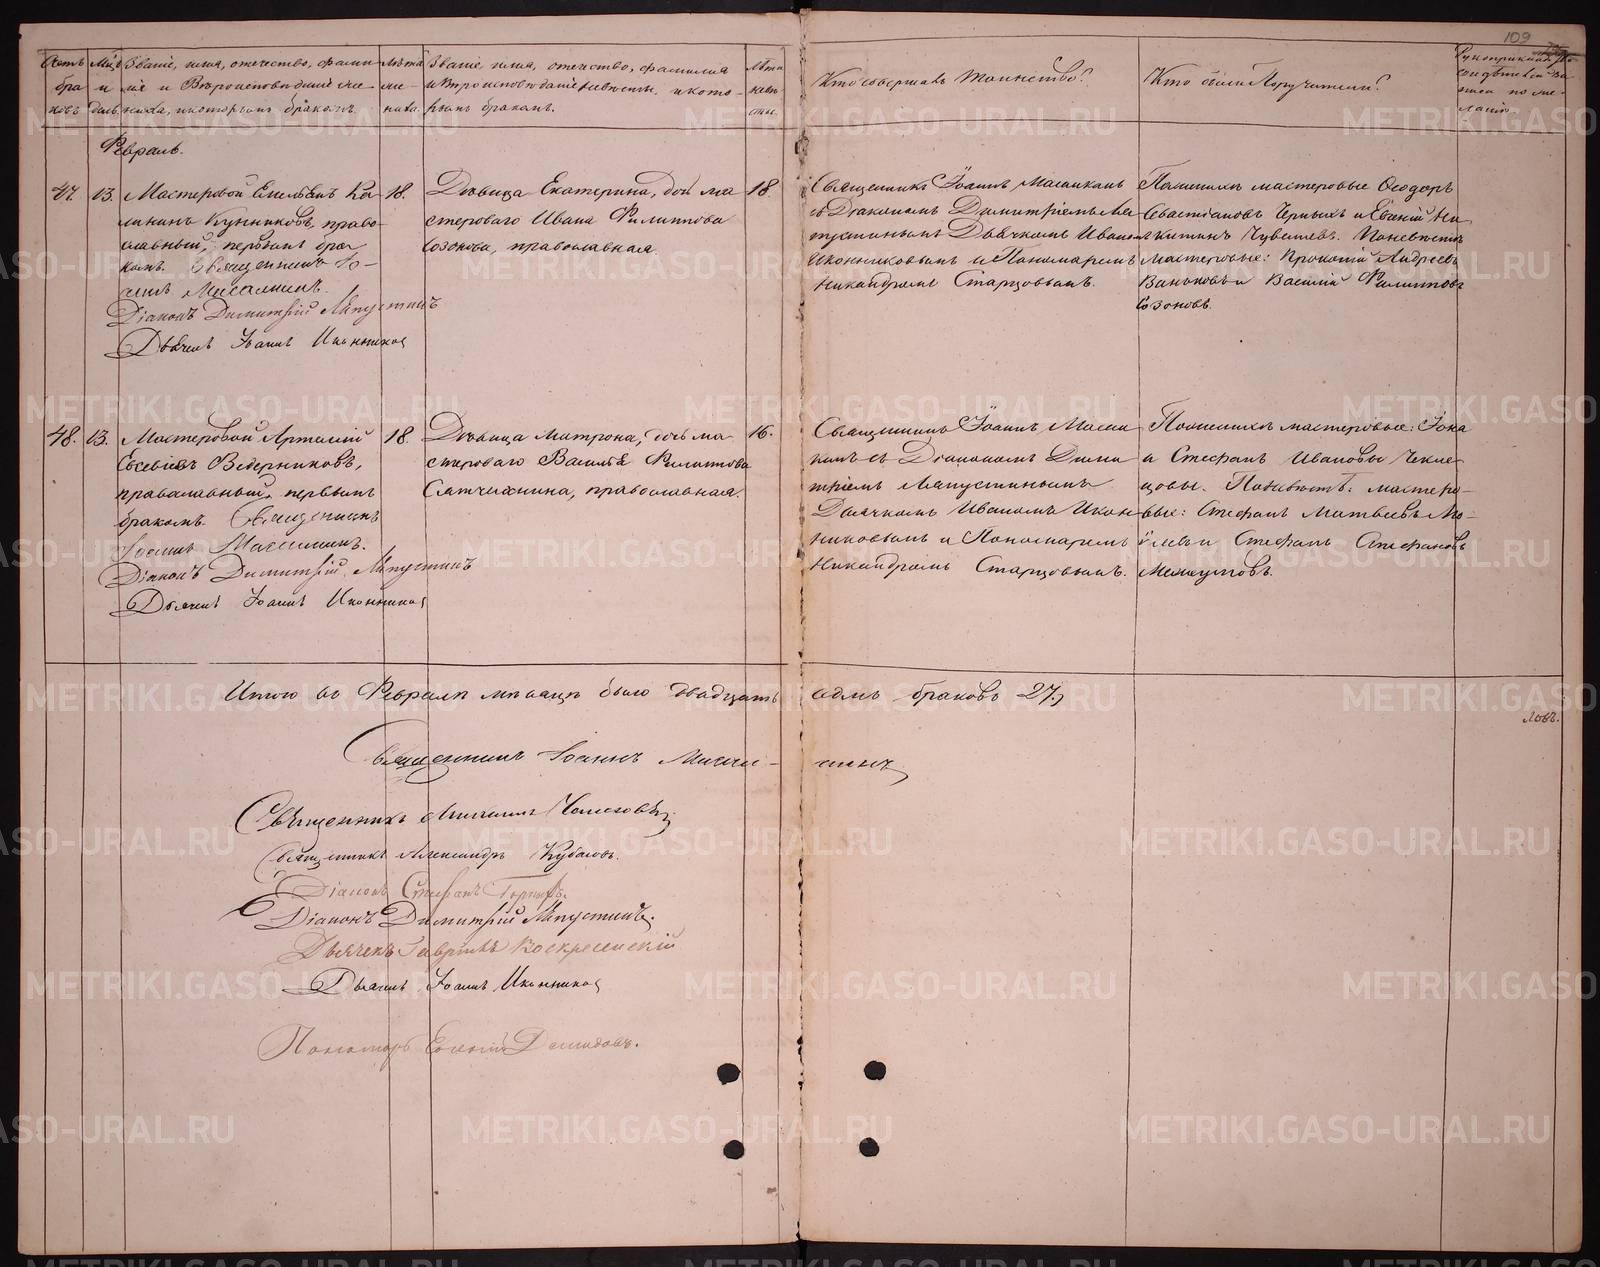 109
Счетъ бра- ковъ
Мѣс. и день
Званіе, имя, отечество, фами-
лія и Вѣроисповѣданіе же-
ниха, и которымъ бракомъ.
Лѣта же- ниха.
Званіе, имя, отечество, фамилія
и Вѣроисповѣданіе невѣсты, и кото-
рымъ бракомъ.
Лѣта невѣ- сты.
Кто совершалъ Таинство?
Кто были Поручители?
Февраль.
47. 13.
Мастеровой Емельянъ Ка-
лининъ Кунниковъ, право-
славный, первымъ бра-
комъ. Священникъ Іо-
аннъ
Діаконъ Димитрій Ляпустинъ
Дьячекъ Іоаннъ Иконников
18.
Дѣвица Екатерина, дочь ма-
стероваго Ивана Филиппова
Созонова, православная.
18.
Священникъ Іоаннъ
съ Діакономъ Димитріемъ Ля-
пустинымъ Дьячкомъ Иваномъ
Иконниковымъ и Пономаремъ
Никандромъ Старцовымъ.
По женихѣ мастеровые Ѳеодоръ
Севастіановъ Черныхъ и Евгеній Ни-
китинъ Чувашевъ. По невѣстѣ
мастеровые: Прокопій Андреевъ
и Василій Филипповъ
Созоновъ.
48. 13.
Мастеровой Артемій
Евсевіевъ Ведерниковъ,
православный, первымъ
бракомъ. Священникъ
Іоаннъ
Діаконъ Димитрій Ляпустинъ
Дьячекъ Іоаннъ Иконников
18.
Дѣвица Матрона, дочь ма-
стероваго Василья Филиппова
православная.
16.
Священникъ Іоаннъ
съ Діакономъ Дими-
тріемъ Ляпустинымъ
Дьячкомъ Иваномъ Икон-
никовымъ и Пономаремъ
Никандромъ Старцовымъ.
По женихѣ мастеровые: Іона
и Стефанъ Ивановы
По невѣстѣ: мастеро-
вые: Стефанъ Матвеевъ
и Стефанъ Стефановъ
Итого въ Февралѣ мѣсяцѣ было двадцать семь браковъ 27.
ловъ.
Священникъ Іоаннъ
Священникъ
Священникъ Александръ
Діаконъ Стефанъ
Діаконъ Димитрій Ляпустинъ.
Дьячекъ Гавріилъ Воскресенскій
Дьячекъ Іоаннъ Иконников
Пономарь Евгеній Демидовъ.
METRIKI.GASO-URAL.RU